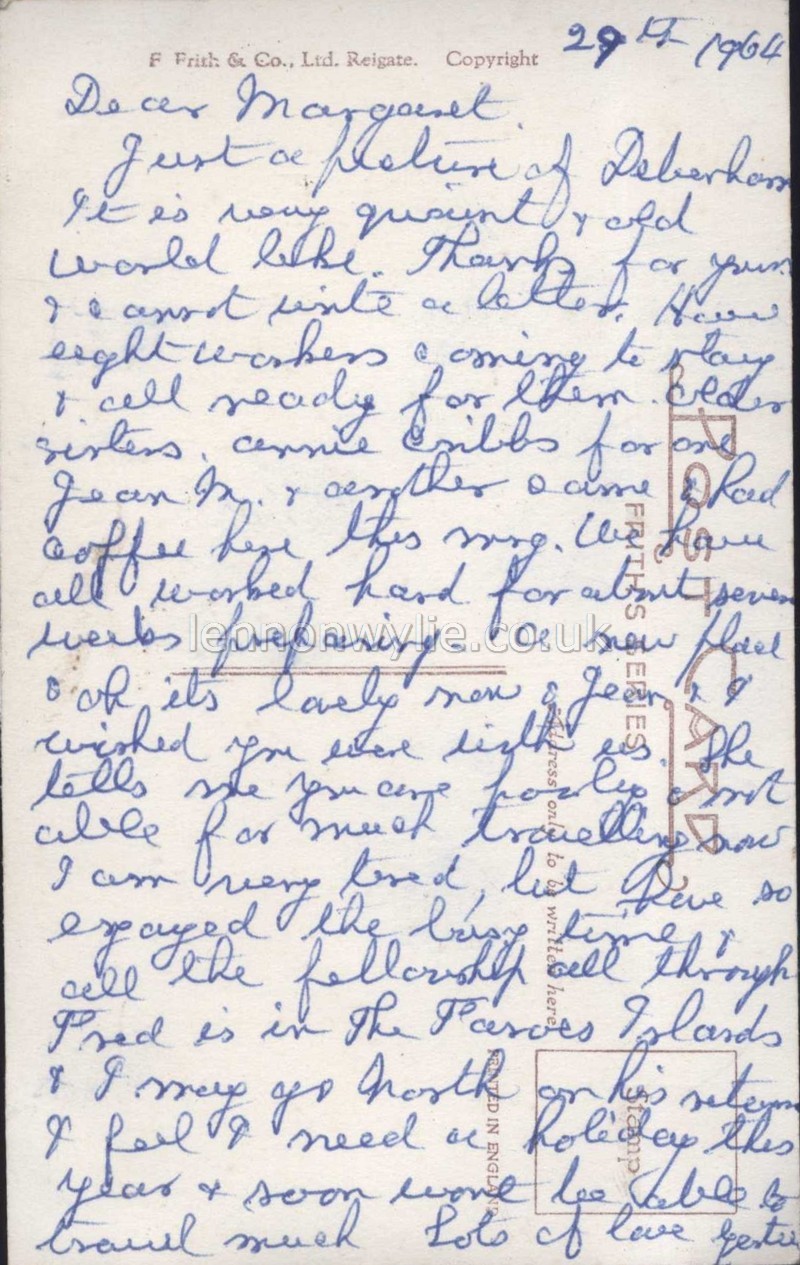 29th 1964
F Frith & Co., Ltd. Reigate. Copyright
Dear Margaret
Just a picture of Debenham
It is very quaint & old
world like. Thanks for yours
& cannot write a letter. Have
eight workers coming to stay
& all ready for them. Older
sisters. Annie Cribbs for one
Jean M. & another came & had
coffee here this mng. We have
all worked hard for about seven
weeks preparing. a new place
& oh its lovely now & Jean & I
wished you were with us. She
tells me you are poorly & not
able for much travelling now
I am very tired, but have so
enjoyed the busy time &
all the fellowship all through
Fred is in The Faroes Islands
& I may go North on his return
I feel I need a holiday this
year & soon wont be able to
travel much Lots of love
POST CARD
FRITH'S SERIES
Address only to be written here
PRINTED IN ENGLAND
Stamp
lennonwylie.co.uk